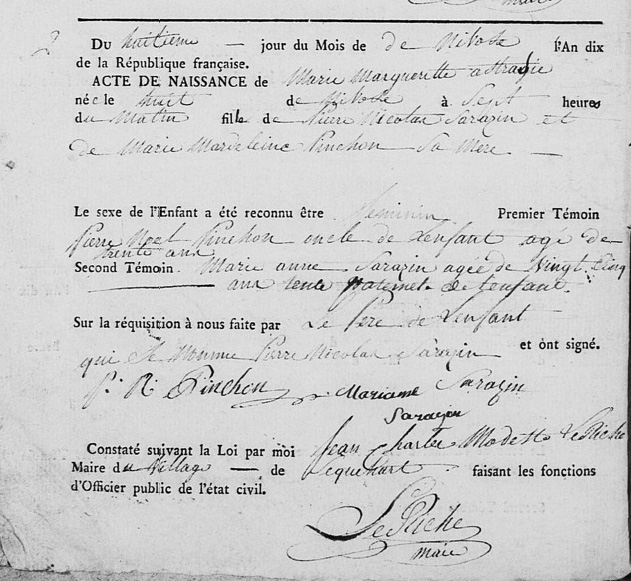 maire
2
Du huitieme — jour du Mois de de Nivose l'An dix
de la République française.
ACTE DE NAISSANCE de Marie Marguerette
née le huit de Nivose à Sept heures
du Matin fille de Pierre Nicolas Sarazin et
de Marie Mardeleine Pinchon Sa Mere —
Le sexe de l'Enfant a été reconnu être feminin Premier Témoin
Pierre Noel Pinchon oncle de Lenfant agé de
trente ans
Second Témoin. Marie anne Sarazin agée de Vingt Cinq
ans tente paternel de Lenfant.
Sur la réquisition à nous faite par Le Pere de Lenfant
qui Se Nomme Pierre Nicolas Sarazin et ont signé.
Pinchon Mariame Sarazin
Sarazin
Constaté suivant la Loi par moi Jean Charles Modeste LeRiche
Maire du Village — de Lequehart faisant les fonctions
d'Officier public de l'état civil.
LeRiche
maire